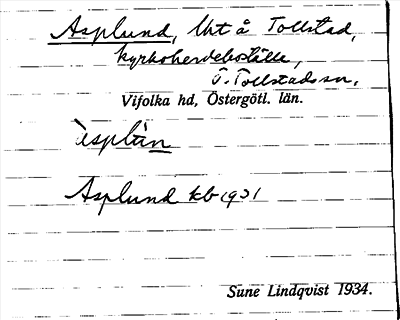 Asplund, Urt å Tollstad,
kyrkoherdeboställe,
V. Tollstads sn,
Vifolka hd, Östergötl. län.
àsplùn
Asplund kb 1921
Sune Lindqvist 1934.